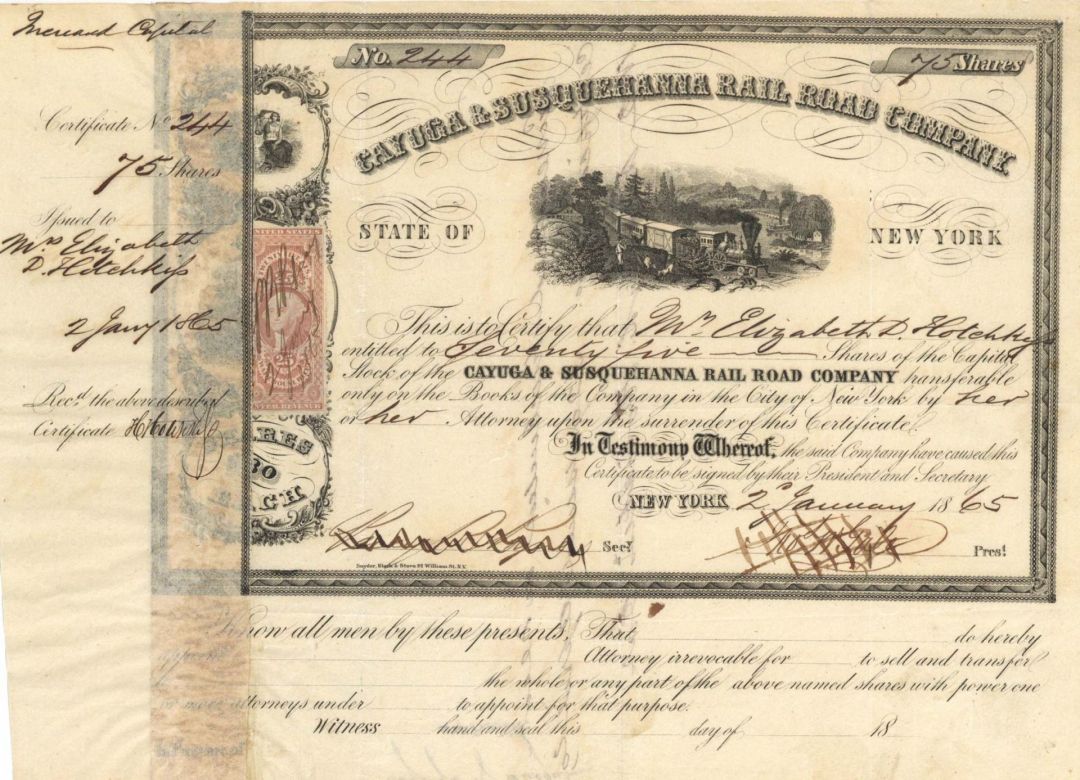 Increased Capital
Certificate No 244
75 Shares
Issued to
Mrs Elizabeth
D. Hotchkiss
2 Jany 1865
Recd. the above described
Certificate
UNITED STATES
25
INTER. REVENUE
SHARES
30
EACH
No. 244
75 Shares
CAYUGA & SUSQUEHANNA RAIL ROAD COMPANY.
STATE OF NEW YORK
This is to Certify that Mrs Elizabeth D. Hotchkiss
entitled to Seventy five Shares of the Capital
Stock of the CAYUGA & SUSQUEHANNA RAIL ROAD COMPANY transferable
only on the Books of the Company in the City of New York by her
or her Attorney upon the surrender of this Certificate.
In Testimony Whereof, the said Company have caused this
Certificate to be signed by their President and Secretary.
NEW YORK 2d January 1865
Secy.
Prest.
Snyder, Black & Sturn 92 William St. N.Y.
Know all men by these presents, That do hereby
appoint Attorney irrevocable for to sell and transfer
the whole or any part of the above named shares with power one
or more attorneys under to appoint for that purpose.
Witness hand and seal this day of 18
In Presence of